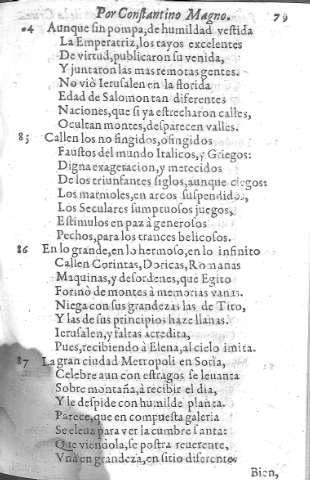 Por Constantino Magno. 79
84 Aunque sin pompa, de humildad vestida
La Emperatriz, los rayos excelentes
De virtud, publicaron su venida,
Y juntaron las mas remotas gentes.
No viò Ierusalen en la florida
Edad de Salomon tan diferentes
Naciones, que si ya estrecharon calles,
Ocultan montes, desparecen valles.
85 Callen los no fingidos, ò fingidos
Faustos del mundo Italicos, y Griegos:
Digna exageracion, y merecidos
De los triunfantes siglos, aunque ciegos:
Los marmoles, en arcos suspendidos,
Los Seculares sumptuosos juegos,
Estimulos en paz à generosos
Pechos, para los trances belicosos.
86 En lo grande, en lo hermoso, en lo infinito
Callen Corintas, Doricas, Romanas
Maquinas, y desordenes, que Egito
Formò de montes à memorias vanas.
Niega con sus grandezas las de Tito,
Y las de sus principios haze llanas.
Ierusalen, y faltas acredita,
Pues, recibiendo à Elena, al cielo imita.
87 La gran ciudad Metropoli en Soria,
Celebre aun con estragos se leuanta
Sobre montaña, à recibir el dia,
Y le despide con humilde planta.
Parece, que en compuesta galeria
Se eleua para ver la cumbre santa:
Que viendola, se postra reuerente,
Vna en grandeza, en sitio diferente.
Bien,